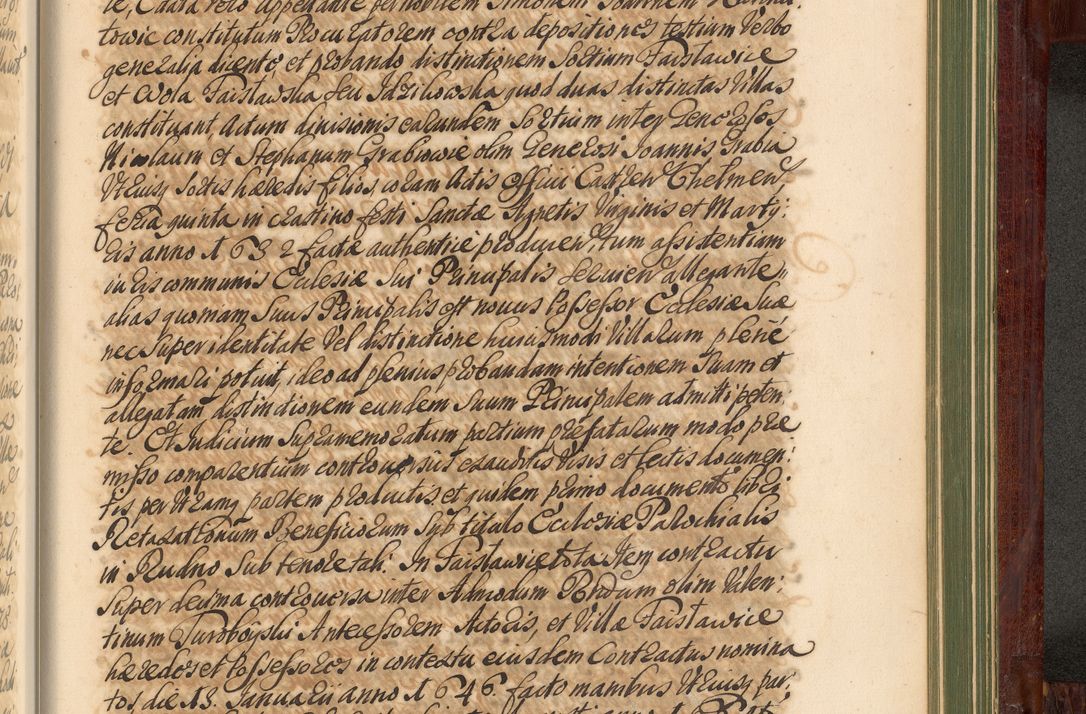 te, Citata vero appellate per nobilem Simonem Joannem
towic constitutum Procuratorem contra depositiones testium Verbo
generalia dicento, et probando distinctionem Sortium Faislawice
et Wola Faislawska seu Idzikowska quod duas distinctas Villas
constituant Actum divisionis earundem Sortium inter Generosos
Nicolaum et Stephanum Grabiowie olim Generosi Joannis Grabia
Utriusq sortis hæredis filios, coram Actis Officii Castren Chelmen,
feria quinta in crastino festi Sanctæ Agnetis Virginis et Marty:
ris anno 1632 factæ authentice producen, tum assidentiam
iuris communis Ecclesiæ sui Principalis servien allegante,
alias quoniam Suus Principalis est novus Possessor Ecclesiæ Suæ
nec super identitate Vel distinctione huiusmodi Villarum plene
informari potuit, ideo ad plenius probandam intentionem Suam et
allegatam distinctionem eundem Suum Principalem admitti peten:
te. Et Judicium Supramemoratum partium præfatarum modo præ
misso comparentium controversiis exauditis Visis et lectis documen:
tis per Utramq partem productis et quidem primo documento libri
Retaxationum Beneficiorum Sub titulo Ecclesiæ Parochialis
in Rudno Sub tenore tali. In Faislawice tota Item contractu
Super decima controversa inter Admodum Rndum olim Valen:
tinum Turoboyski Antecessorem Actoris, et Villæ Faislawice
hæredes et Possessores in contextu eiusdem Contractus nomina
tos die 13. Januarii anno 1646. facto manibus Utriusq par,